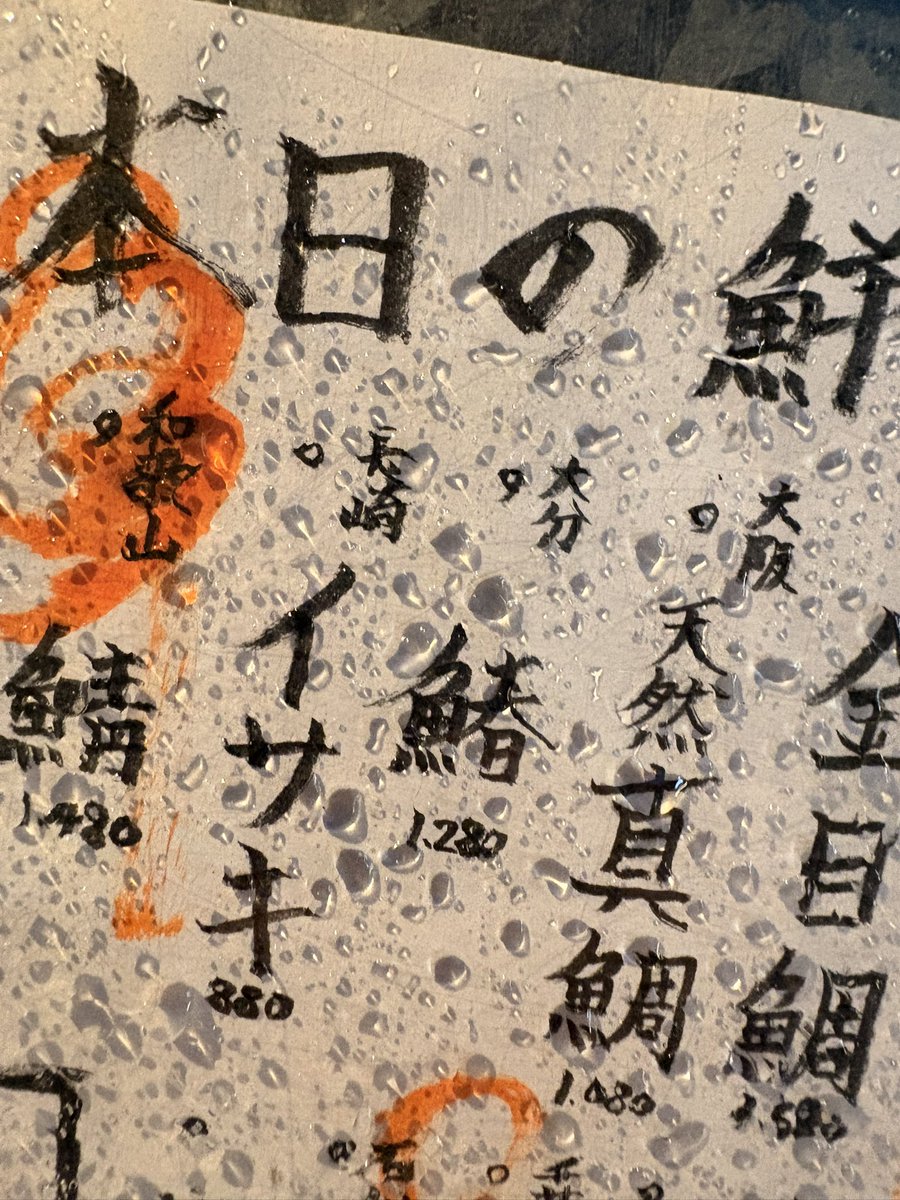 本日の鮮
金目鯛
1.580
大阪
天然真鯛
大分
鰆
1.280
長崎
イサキ
880
和歌山
鯖
1.480